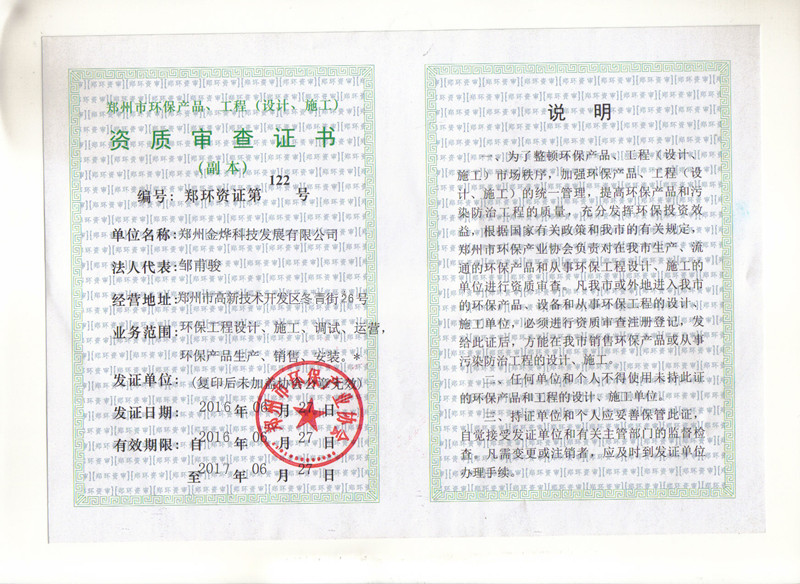 郑州市环保产品、工程（设计、施工）
资质审查证书
（副本）
编号：郑环资证第 122 号
单位名称：郑州金烨科技发展有限公司
法人代表：邹甫骏
经营地址：郑州市高新技术开发区冬青街26号
业务范围：环保工程设计、施工、调试、运营，
环保产品生产、销售、安装。*
发证单位：（复印后未加盖协会公章无效）
发证日期： 2016 年 06 月 27 日
有效期限：自 2016 年 06 月 27 日
至 2017 年 06 月 27 日
郑州市环保产业协会
说 明
一、为了整顿环保产品、工程（设计、
施工）市场秩序，加强环保产品、工程（设
计、施工）的统一管理，提高环保产品和污
染防治工程的质量，充分发挥环保投资效
益，根据国家有关政策和我市的有关规定，
郑州市环保产业协会负责对在我市生产、流
通的环保产品和从事环保工程设计、施工的
单位进行资质审查。凡我市或外地进入我市
的环保产品、设备和从事环保工程的设计、
施工单位，必须进行资质审查注册登记，发
给此证后，方能在我市销售环保产品或从事
污染防治工程的设计、施工。
二、任何单位和个人不得使用未持此证
的环保产品和工程的设计、施工单位。
三、持证单位和个人应妥善保管此证，
自觉接受发证单位和有关主管部门的监督检
查。凡需变更或注销者，应及时到发证单位
办理手续。